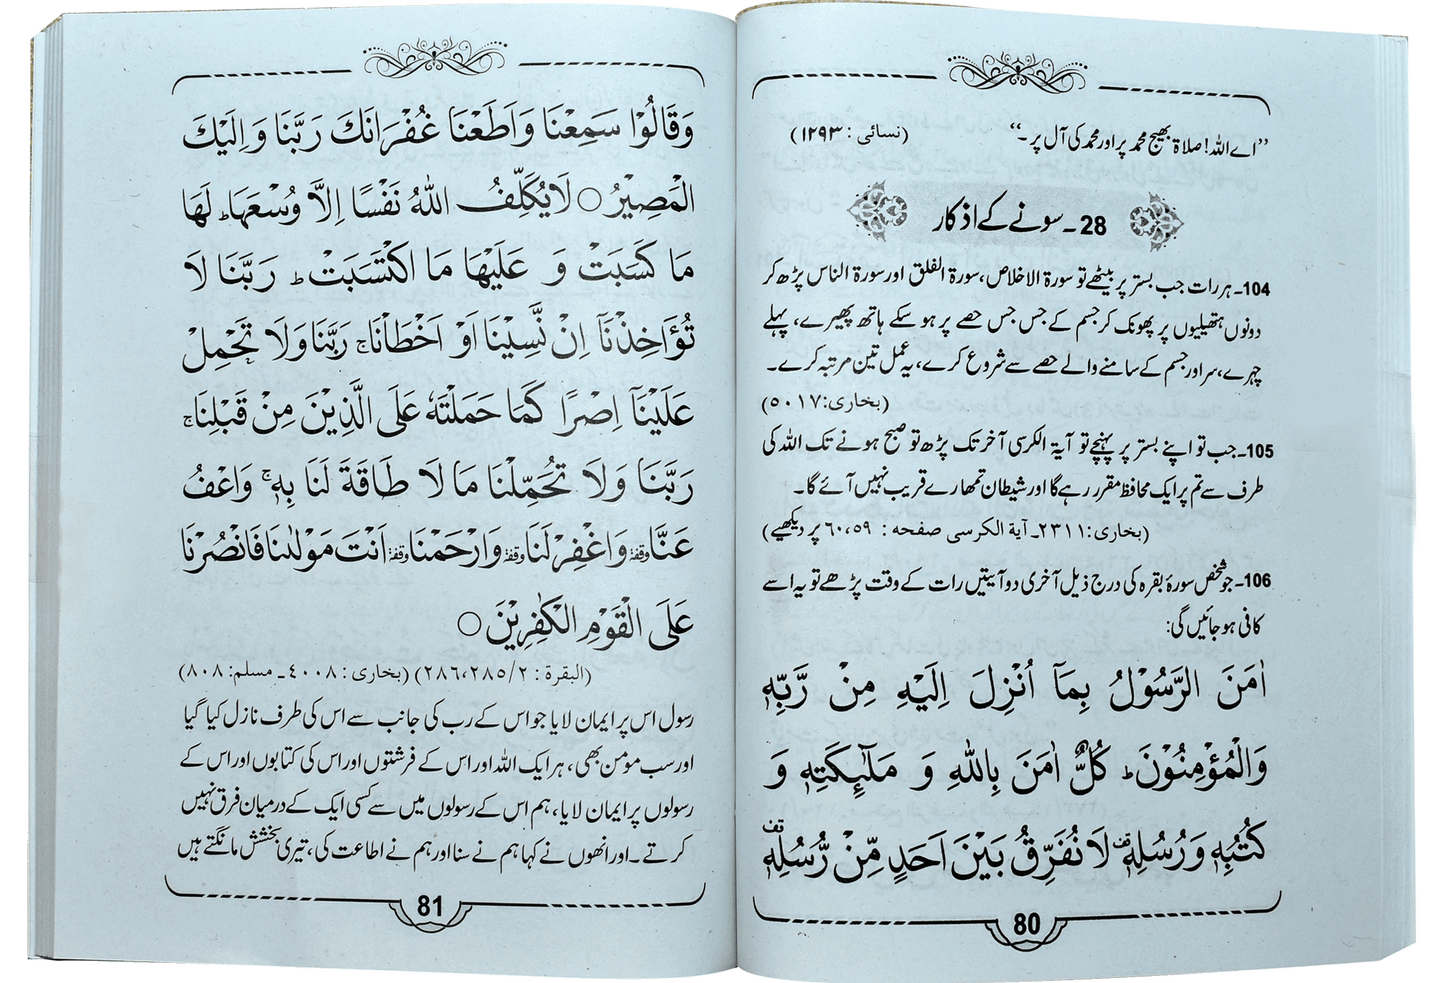 ”اے اللہ! صلاۃ بھیج محمد پر اور محمد کی آل پر۔“ (نسائی : ۱۲۹۳)
28۔ سونے کے اذکار
104۔ ہر رات جب بستر پر بیٹھے تو سورۃ الاخلاص، سورۃ الفلق اور سورۃ الناس پڑھ کر
دونوں ہتھیلیوں پر پھونک کر جسم کے جس جس حصے پر ہو سکے ہاتھ پھیرے، پہلے
چہرے، سر اور جسم کے سامنے والے حصے سے شروع کرے، یہ عمل تین مرتبہ کرے۔
(بخاری: ۵۰۱۷)
105۔ جب تو اپنے بستر پر پہنچے تو آیۃ الکرسی آخر تک پڑھ تو صبح ہونے تک اللہ کی
طرف سے تم پر ایک محافظ مقرر رہے گا اور شیطان تمھارے قریب نہیں آئے گا۔
(بخاری: ۲۳۱۱۔ آیة الکرسی صفحه : ۶۰،۵۹ پر دیکھیے)
106۔ جو شخص سورۂ بقرہ کی درج ذیل آخری دو آیتیں رات کے وقت پڑھے تو یہ اسے
کافی ہو جائیں گی:
اٰمَنَ الرَّسُوْلُ بِمَاۤ اُنْزِلَ اِلَيْهِ مِنْ رَّبِّهٖ
وَالْمُؤْمِنُوْنَ ؕ كُلٌّ اٰمَنَ بِاللّٰهِ وَ مَلٰٓئِكَتِهٖ وَ
كُتُبِهٖ وَرُسُلِهٖ ۟ لَا نُفَرِّقُ بَيْنَ اَحَدٍ مِّنْ رُّسُلِهٖ ۟
80
وَقَالُوْا سَمِعْنَا وَاَطَعْنَا غُفْرَانَكَ رَبَّنَا وَاِلَيْكَ
الْمَصِيْرُ ○ لَا يُكَلِّفُ اللّٰهُ نَفْسًا اِلَّا وُسْعَهَا ؕ لَهَا
مَا كَسَبَتْ وَ عَلَيْهَا مَا اكْتَسَبَتْ ؕ رَبَّنَا لَا
تُؤَاخِذْنَاۤ اِنْ نَّسِيْنَاۤ اَوْ اَخْطَاْنَا ۚ رَبَّنَا وَلَا تَحْمِلْ
عَلَيْنَاۤ اِصْرًا كَمَا حَمَلْتَهٗ عَلَى الَّذِيْنَ مِنْ قَبْلِنَا ۚ
رَبَّنَا وَلَا تُحَمِّلْنَا مَا لَا طَاقَةَ لَنَا بِهٖ ۚ وَاعْفُ
عَنَّا وقفة وَاغْفِرْ لَنَا وقفة وَارْحَمْنَا وقفة اَنْتَ مَوْلٰىنَا فَانْصُرْنَا
عَلَى الْقَوْمِ الْكٰفِرِيْنَ ○
(البقرة : ۲۸۶،۲۸۵/۲) (بخاری : ۴۰۰۸۔ مسلم: ۸۰۸)
رسول اس پر ایمان لایا جو اس کے رب کی جانب سے اس کی طرف نازل کیا گیا
اور سب مومن بھی، ہر ایک اللہ اور اس کے فرشتوں اور اس کی کتابوں اور اس کے
رسولوں پر ایمان لایا، ہم اس کے رسولوں میں سے کسی ایک کے درمیان فرق نہیں
کرتے۔ اور انھوں نے کہا ہم نے سنا اور ہم نے اطاعت کی، تیری بخشش مانگتے ہیں
81